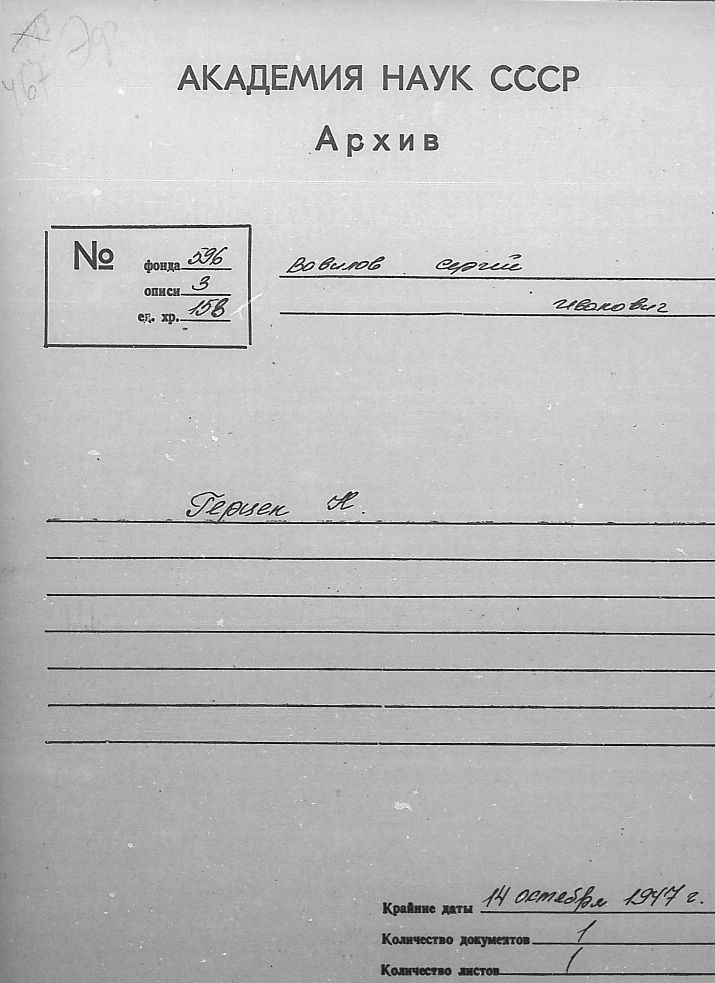 467
АКАДЕМИЯ НАУК СССР
Архив
№
фонда 596
описи 3
ед. хр. 158
Вавилов Сергей
Иванович
Герцен Н.
Крайние даты 14 октября 1947 г.
Количество документов 1
Количество листов 1